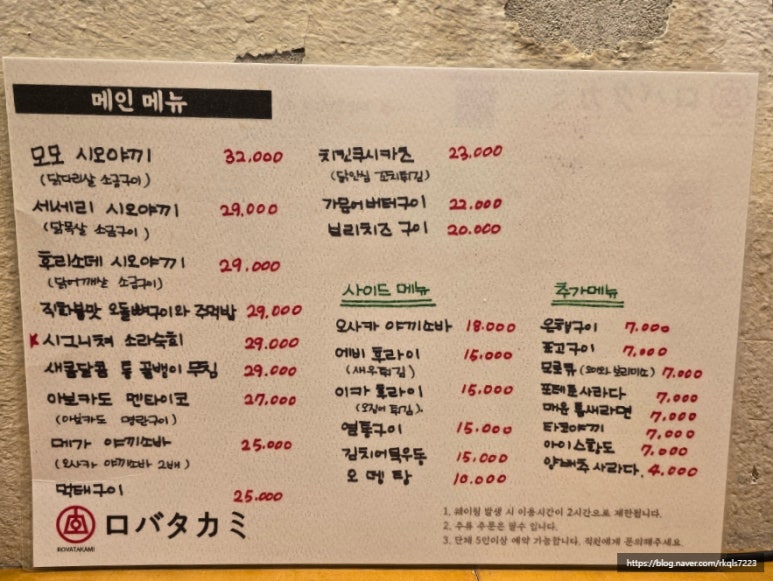 메인 메뉴
모모 시오야끼 32,000
(닭다리살 소금구이)
세세리 시오야끼 29,000
(닭목살 소금구이)
후리소데 시오야끼 29,000
(닭어깨살 소금구이)
직화불맛 오돌뼈구이와 주먹밥 29,000
시그니쳐 소라숙회 29,000
새콤달콤 통 골뱅이 무침 29,000
아보카도 멘타이코 27,000
(아보카도 명란구이)
메가 야끼소바 25,000
(오사카 야끼소바 2배)
먹태구이 25,000
치킨쿠시카츠 23,000
(닭안심 꼬치튀김)
가뭄어버터구이 22,000
브리치즈 구이 20,000
사이드 메뉴
오사카 야끼소바 18,000
에비 후라이 15,000
(새우튀김)
이카 후라이 15,000
(오징어 튀김)
열통구이 15,000
김치어묵우동 15,000
오뎅탕 10,000
추가메뉴
은행구이 7,000
표고구이 7,000
모로큐 (오이와 보리미소) 7,000
포테토사라다 7,000
매운 틈새라면 7,000
타코야끼 7,000
아이스황도 7,000
양배추 사라다 4,000
ロバタカミ
ROVATAKAMI
1. 웨이팅 발생 시 이용시간이 2시간으로 제한됩니다.
2. 주류 주문은 필수 입니다.
3. 단체 5인이상 예약 가능합니다. 직원에게 문의해주세요
https://blog.naver.com/rkqls7223